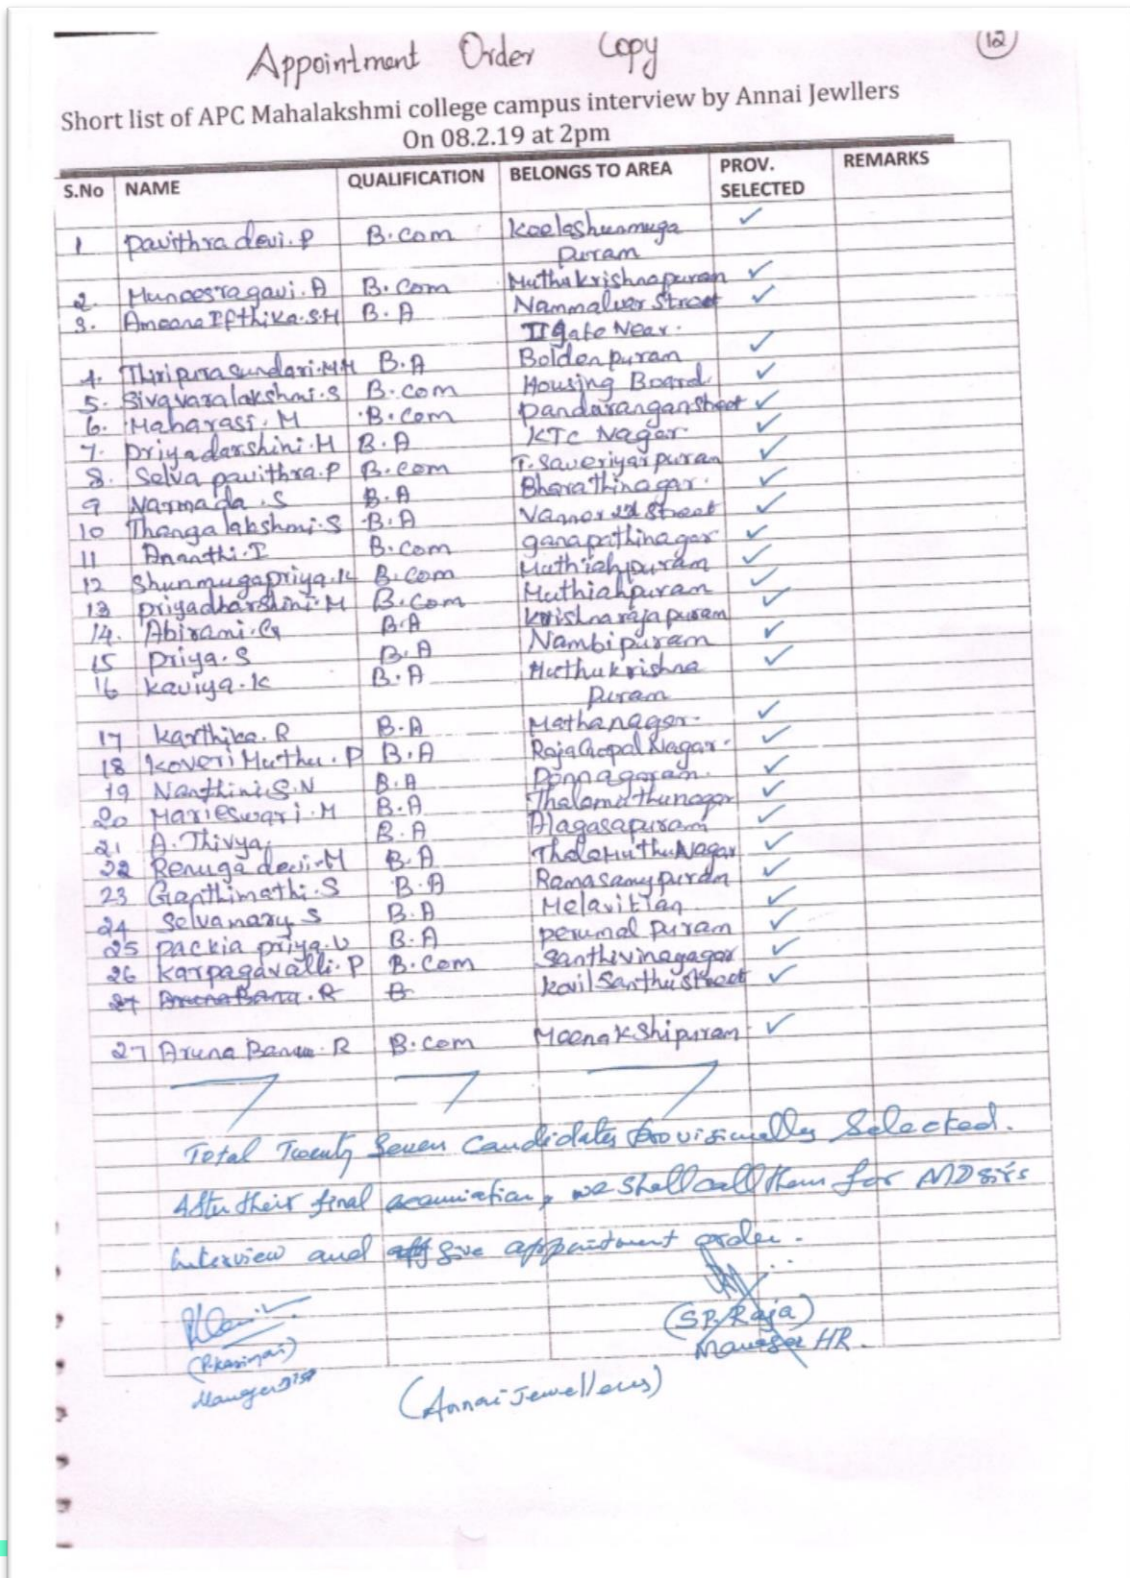 Appointment Order Copy
12
Short list of APC Mahalakshmi college campus interview by Annai Jewllers
On 08.2.19 at 2pm
S.No NAME QUALIFICATION BELONGS TO AREA PROV. SELECTED REMARKS
1 Pavithra devi.P B.Com Keelashunmuga
Puram ✓
2. Muneesragavi.A B.Com Muthukrishnapuram ✓
3. Ameena Ifthika.S.H B.A Nammalvar Street ✓
II gate Near.
4. Thiripurasundari.M.M B.A Boldenpuram ✓
5. Sivavaralakshmi.S B.Com Housing Board ✓
6. Maharasi.M B.Com Pandarangan Street ✓
7. Priyadarshini.M B.A KTC Nagar ✓
8. Selva pavithra.P B.Com T.Saveriyarpuram ✓
9 Narmada.S B.A Bharathinagar. ✓
10 Thangalakshmi.S B.A Street ✓
11 Ananthi.I B.Com ganapathinagar ✓
12 Shunmugapriya.K B.Com Muthiahpuram ✓
13 Priyadharshini.M B.Com Muthiahpuram ✓
14. Abirami.G B.A Krishnarajapuram ✓
15 Priya.S B.A Nambipuram ✓
16 Kaviya.K B.A Muthukrishna
Puram ✓
17 Karthika.R B.A Mathanagar. ✓
18 Koveri Muthu.P B.A RajaGopal Nagar. ✓
19 Nanthini.S.N B.A Ponnagaram. ✓
20 Marieswari.M B.A Thalamuthunagar ✓
21 A.Thivya B.A Alagasapuram ✓
22 Renuga devi.M B.A Thalamuthu Nagar ✓
23 Ganthimathi.S B.A Ramasamypuram ✓
24 Selvamary.S B.A ✓
25 Packia priya.U B.A Perumal Puram ✓
26 Karpagavalli.P B.Com Santhivinagagar ✓
27 Aruna Banu.R B Kovil Santhu Street ✓
27 Aruna Banu.R B.Com Meenakshipuram ✓
Total Twenty Seven Candidates provisionally Selected.
After their final we shall call them for MD sir's
interview and give appointment order.
(S.P. Raja)
Manager HR.
Manager
(Annai Jewellers)